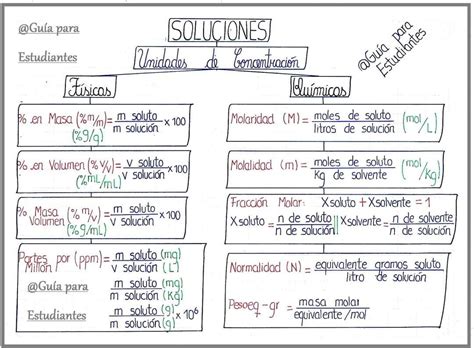 @Guía para
Estudiantes
SOLUCIONES
Unidades de Concentración
@Guía para
Estudiantes
Físicas
Químicas
% en Masa (% m/m) = m soluto / m solución × 100
(% g/g)
% en Volumen (% v/v) = v soluto / v solución × 100
(% mL/mL)
% Masa / Volumen (% m/v) = m soluto / v solución × 100
(% g/mL)
Partes por Millón (ppm) = m soluto (mg) / v solución (L)
m soluto (mg) / m solución (Kg)
m soluto (g) / m solución (g) × 10⁶
@Guía para
Estudiantes
Molaridad (M) = moles de soluto / litros de solución (mol/L)
Molalidad (m) = moles de soluto / Kg de solvente (mol/Kg)
Fracción Molar: Xsoluto + Xsolvente = 1
Xsoluto = n de soluto / n de solución || Xsolvente = n de solvente / n de solución
Normalidad (N) = equivalente gramos soluto / litro de solución
Peso eq-gr = masa molar / equivalente/mol